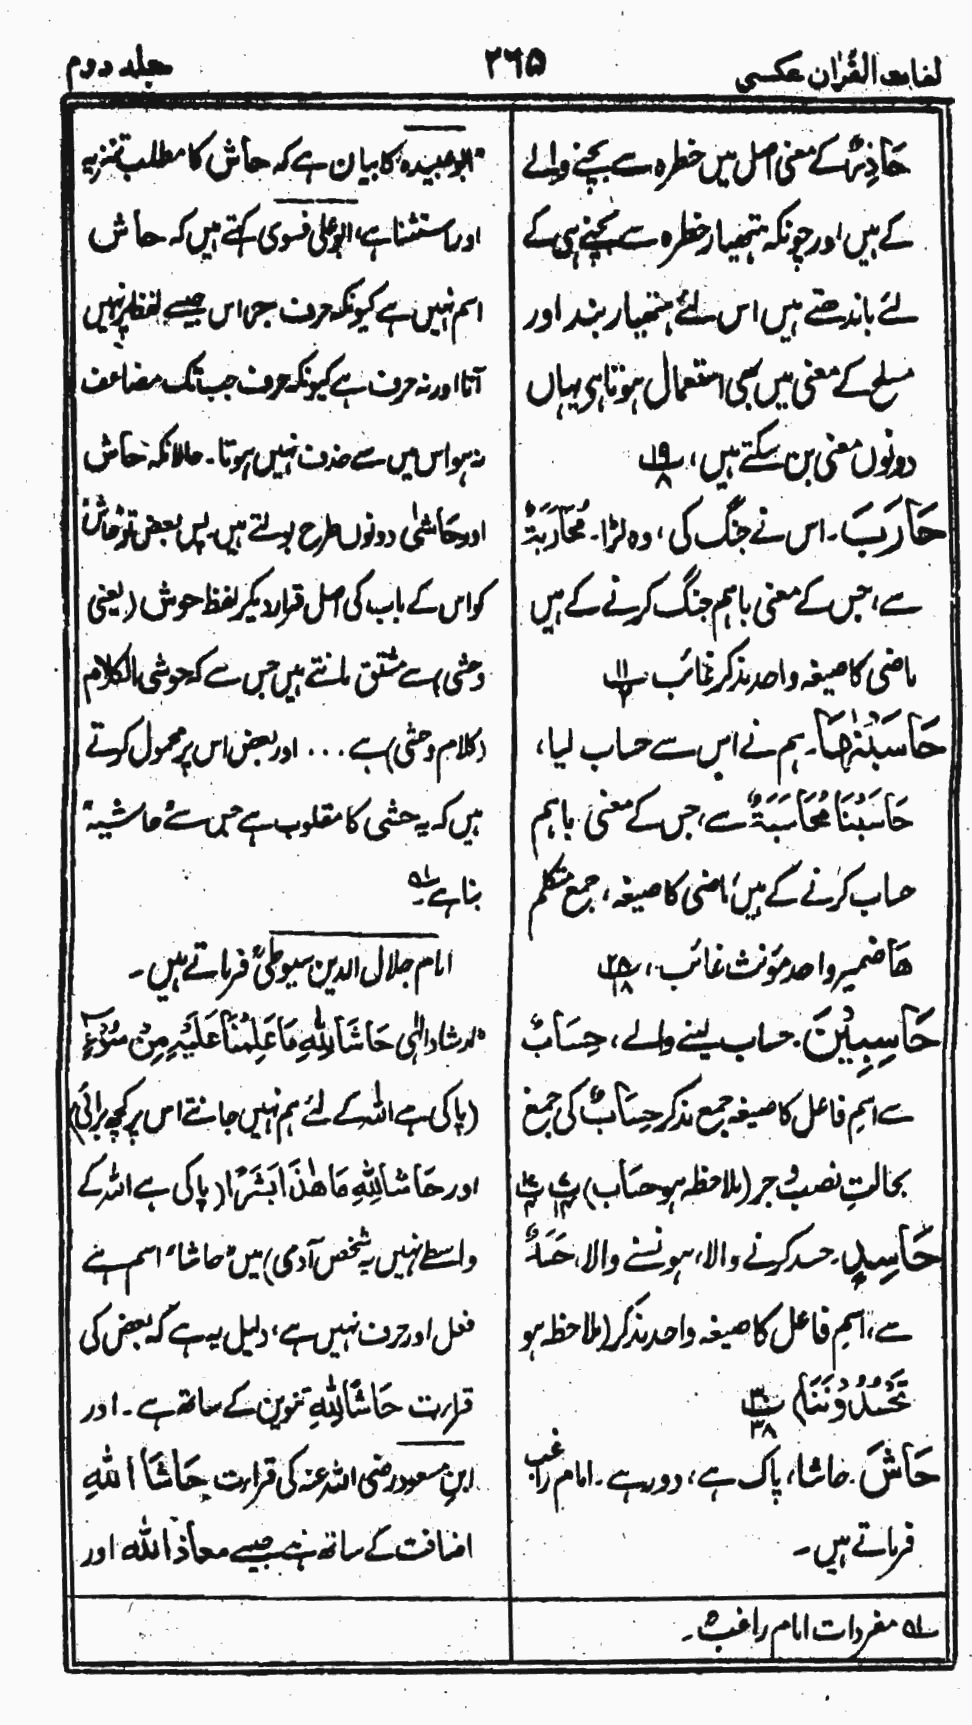 لغات القرآن عکسی
۲۶۵
جلد دوم
حَاذِرٌ کے معنی اصل میں خطرہ سے بچنے والے
کے ہیں اور چونکہ ہتھیار خطرہ سے بچنے ہی کے
لئے باندھتے ہیں اس لئے ہتھیار بند اور
مسلح کے معنی میں بھی استعمال ہوتا ہی یہاں
دونوں معنی بن سکتے ہیں، ۱۹/۸
حَارَبَ۔ اس نے جنگ کی، وہ لڑا۔ مُحَارَبَۃٌ
سے، جس کے معنی باہم جنگ کرنے کے ہیں
ماضی کا صیغہ واحد مذکر غائب ۱۱/۲
حَاسَبْنٰھَا۔ ہم نے اس سے حساب لیا،
حَاسَبْنَا مُحَاسَبَۃٌ سے، جس کے معنی باہم
حساب کرنے کے ہیں ماضی کا صیغہ، جمع متکلم
ھَا ضمیر واحد مؤنث غائب، ۲۸/۱۸
حَاسِبِیْنَ۔ حساب لینے والے، حِسَابٌ
سے اسم فاعل کا صیغہ جمع مذکر حِسَابٌ کی جمع
بحالتِ نصب و جر (ملاحظہ ہو حساب)
حَاسِدٍ۔ حسد کرنے والا، ہونسنے والا، حَسَدٌ
سے، اسمِ فاعل کا صیغہ واحد مذکر (ملاحظہ ہو
تَحْسُدُوْنَنَا) ۳۰/۳۸
حَاشَ۔ حاشا، پاک ہے، دور ہے۔ امام راغب
فرماتے ہیں۔
"ابو عبیدہ کا بیان ہے کہ حاش کا مطلب تنزیہ
اور استثنا ہے، ابو علی فسوی کہتے ہیں کہ حاش
اسم نہیں ہے کیونکہ حرف جر اس جیسے لفظ پر نہیں
آتا اور نہ حرف ہے کیونکہ حرف جب تک مضاعف
نہ ہو اس میں سے حذف نہیں ہوتا۔ حالانکہ حاش
اور حَاشٰی دونوں طرح بولتے ہیں۔ پس بعض تو حَاشَ
کو اس کے باب کی اصل قرار دیکر لفظ حوش (یعنی
وحشی) سے مشتق مانتے ہیں جس سے کہ حوشی الکلام
(کلام وحشی) ہے ... اور بعض اس پر محمول کرتے
ہیں کہ یہ حشی کا مقلوب ہے جس سے حاشیہ"
بنا ہے۔ ۱؎
امام جلال الدین سیوطیؒ فرماتے ہیں۔
"ارشاد الٰہی حَاشَا لِلّٰہِ مَا عَلِمْنَا عَلَیْہِ مِنْ سُوْءٍ
(پاکی ہے اللہ کے لئے ہم نہیں جانتے اس پر کچھ برائی)
اور حَاشَا لِلّٰہِ مَا ھٰذَا بَشَرًا (پاکی ہے اللہ کے
واسطے نہیں یہ شخص آدمی) میں "حاشا" اسم ہے
فعل اور حرف نہیں ہے، دلیل یہ ہے کہ بعض کی
قرارت حَاشًا لِلّٰہِ تنوین کے ساتھ ہے۔ اور
ابنِ مسعود رضی اللہ عنہ کی قرارت حَاشَا اللّٰہِ
اضافت کے ساتھ ہے جیسے معاذ اللّٰہ اور
۱؎ مفردات امام راغبؒ۔